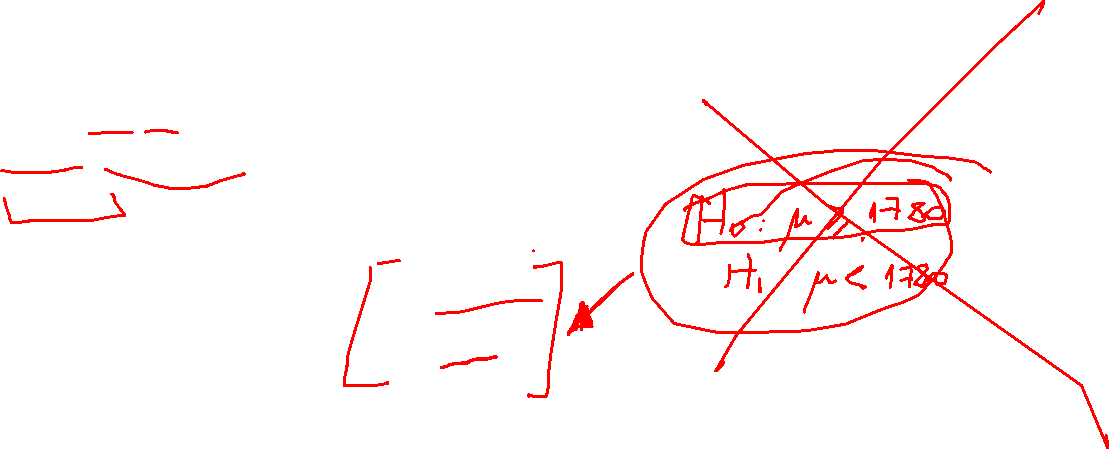 H₀: μ ≥ 1780
H₁ μ < 1780